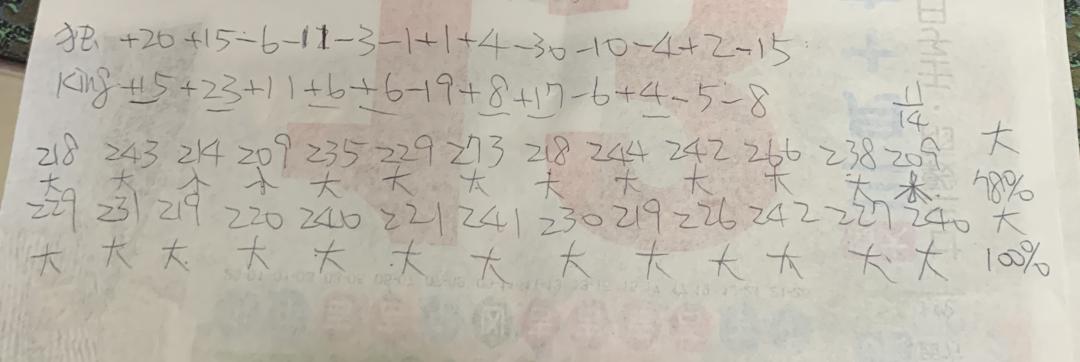 +20 +15 -6 -11 -3 -1 +1 +4 -30 -10 -4 +2 -15
King +15 +23 +11 +6 +6 -19 +8 +17 -6 +4 -5 -8
11/14
218 243 214 209 235 229 273 218 244 242 266 238 209 大
大 大 大 大 大 大 大 大 大 大 大 大
229 231 219 220 240 221 241 230 219 226 242 227 240 大
大 大 大 大 大 大 大 大 大 大 大 大 大 100%